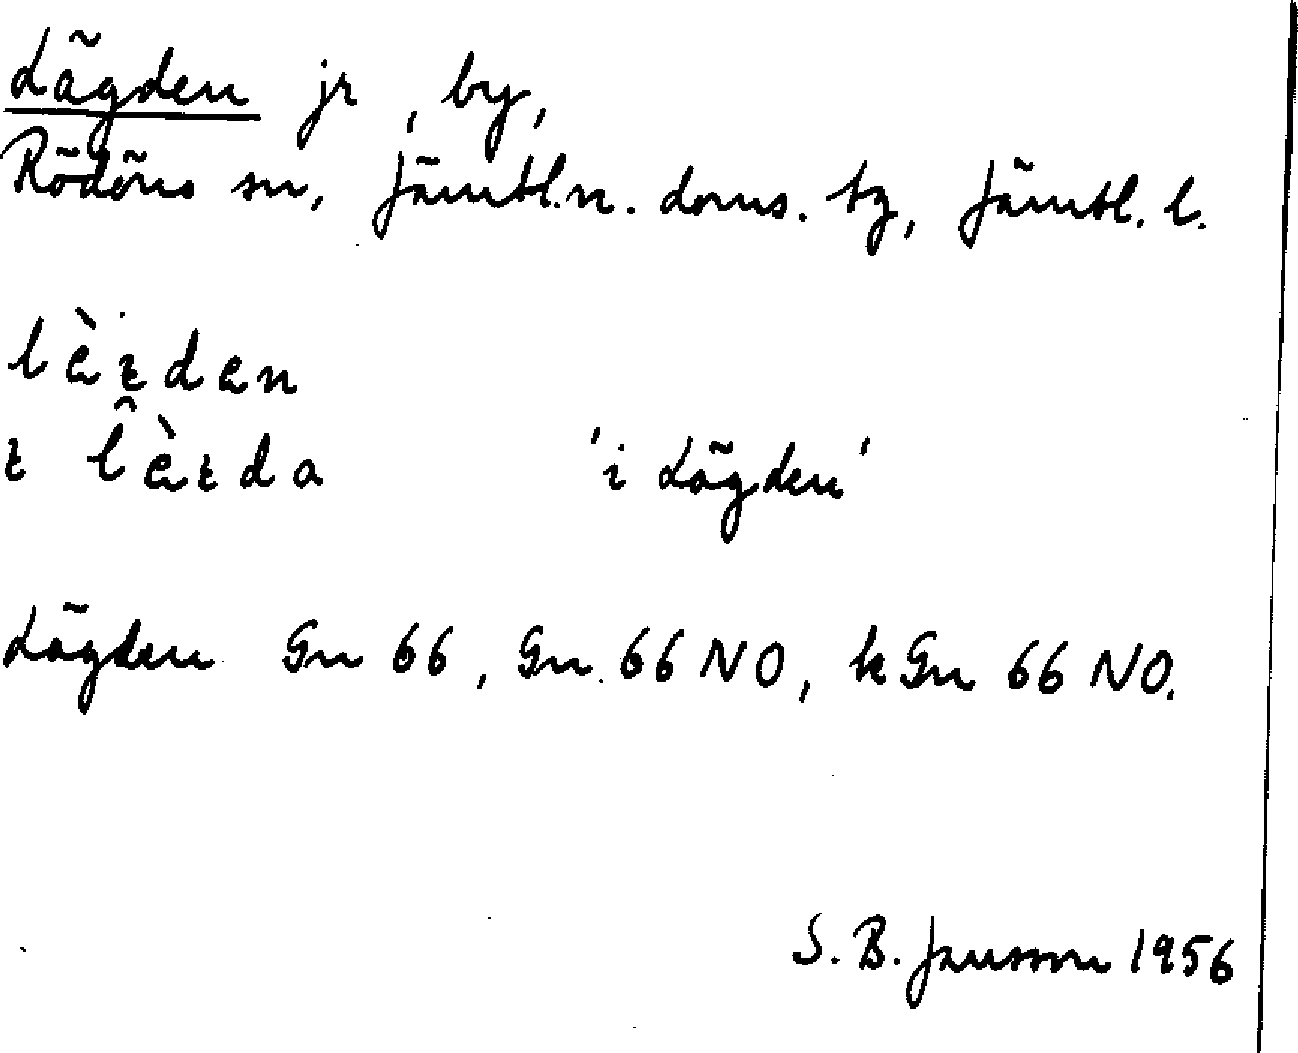 Lägden jr, by,
Rödöns sn, Jämtl.n. doms. tg, Jämtl. l.
lèɪden
ɪ l̂èɪda 'i Lägden'
Lägden Gn 66, Gn. 66 NO, kGn 66 NO.
S. B. Jansson 1956